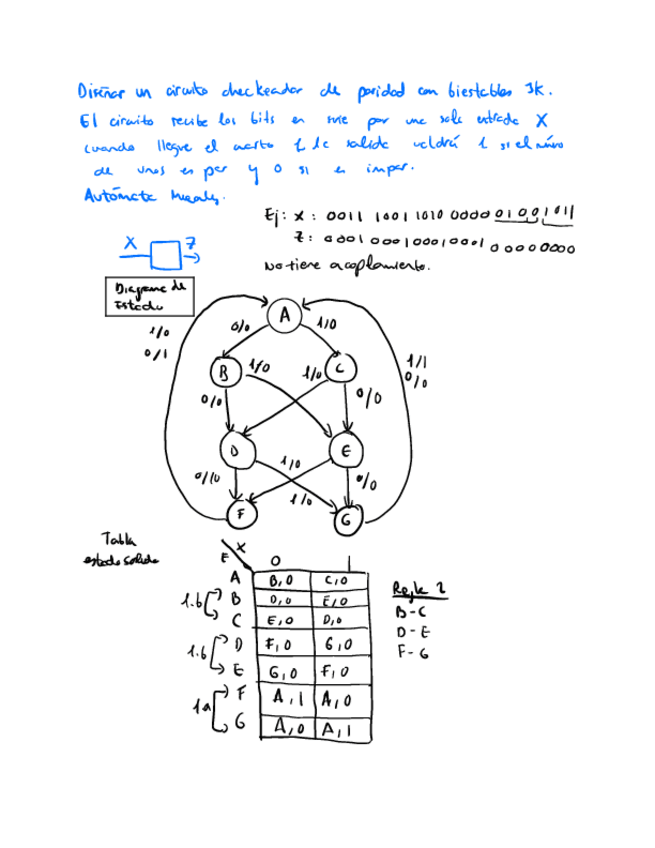 Diseñar un circuito checkeador de paridad con biestables Jk.
El circuito recibe los bits en serie por una sola entrada X
cuando llegue el cuarto 1 la salida valdrá 1 si el núm
de unos es par y 0 si es impar.
Autómata Mealy.
Ej: X: 0011 1001 1010 0000 0100 1011
Z: 0001 0001 0001 0001 0000 0000
No tiene acoplamiento.
X Z
Diagrama de
Estado
A
0/0 1/0
1/0
0/1
B 1/0 1/0 C
1/1
0/0
0/0 0/0
D E
1/0
0/10 1/0 0/0
F G
Tabla
estado salida
X
E 0 1
A B,0 C,0
1.b B D,0 E,0
C E,0 D,0
1.b D F,0 G,0
E G,0 F,0
1a F A,1 A,0
G A,0 A,1
Regla 2
B-C
D-E
F-G